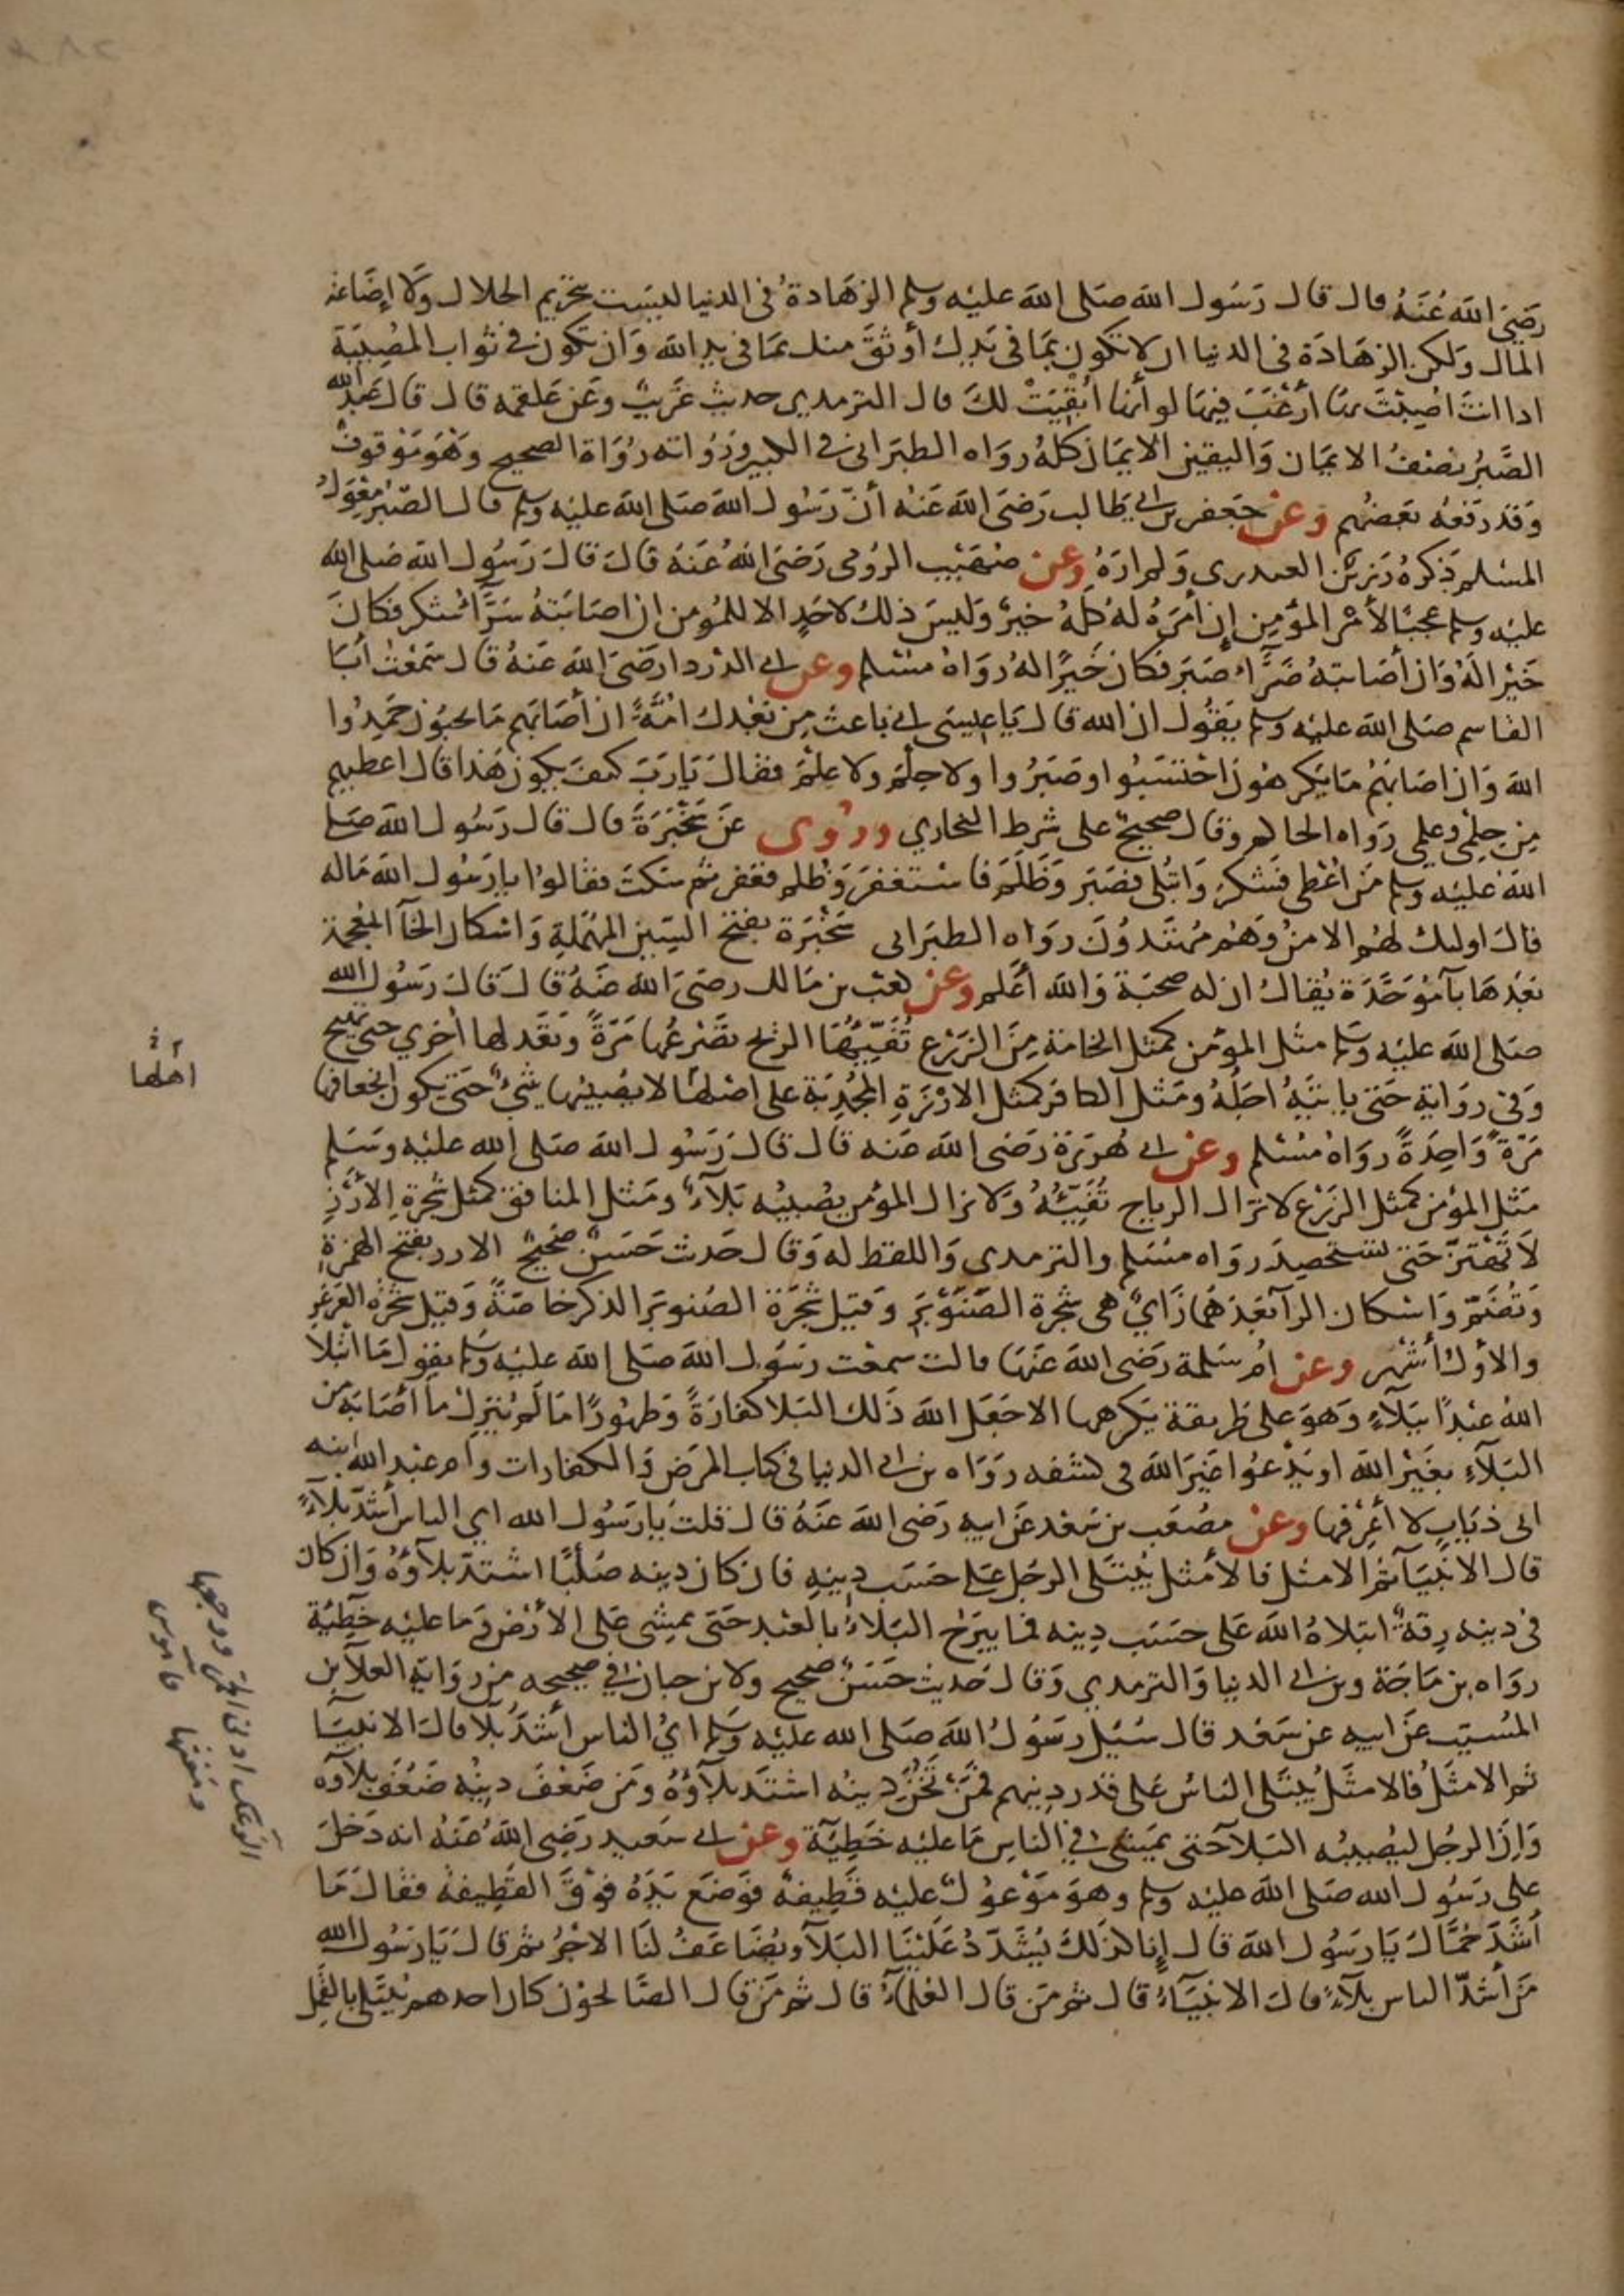 رضي الله عنه قال قال رسول الله صلى الله عليه وسلم الزهادة في الدنيا ليست بتحريم الحلال ولا إضاعة
المال ولكن الزهادة في الدنيا ان لا تكون بما في يدك أوثق منك بما في يد الله وان تكون في ثواب المصيبة
اذا انت اصبت بها أرغب فيها لو أنها أبقيت لك قال الترمذي حديث غريب وعن علقمة قال قال عبد الله
الصبر نصف الايمان واليقين الايمان كله رواه الطبراني في الكبير ورواته رواة الصحيح وهو موقوف
وقد رفعه بعضهم وعن جعفر بن ابي طالب رضي الله عنه أن رسول الله صلى الله عليه وسلم قال الصبر معول
المسلم ذكره رزين العبدري ولم اره وعن صهيب الرومي رضي الله عنه قال قال رسول الله صلى الله
عليه وسلم عجبا لأمر المؤمن إن أمره له كله خير وليس ذلك لاحد الا للمؤمن ان اصابته سرآء شكر فكان
خيرا له وان أصابته ضرآء صبر فكان خيرا له رواه مسلم وعن ابي الدردا رضي الله عنه قال سمعت أبا
القاسم صلى الله عليه وسلم يقول ان الله قال يا عيسى اني باعث من بعدك امة ان أصابهم ما يحبون حمدوا
الله وان اصابهم ما يكرهون احتسبوا وصبروا ولا حلم ولا علم فقال يا رب كيف يكون هذا قال اعطيهم
من حلمي وعلمي رواه الحاكم وقال صحيح على شرط البخاري وروى عن سخبرة قال قال رسول الله صلى
الله عليه وسلم من اعطى فشكر وابتلى فصبر وظلم فاستغفر وظلم فغفر ثم سكت فقالوا يا رسول الله ماله
قال اوليك لهم الامن وهم مهتدون رواه الطبراني سخبرة بفتح السين المهملة واسكان الخآ المعجمة
بعدها بآ موحدة يقال ان له صحبة والله أعلم وعن كعب بن مالك رضي الله عنه قال قال رسول الله
صلى الله عليه وسلم مثل المؤمن كمثل الخامة من الزرع تفيئها الريح تصرعها مرة وتعدلها أخري حتى تهيج
وفي رواية حتى ياتيه اجله ومثل الكافر كمثل الارزة المجذية على اصلها لا يصيبها شئ حتى يكون انجعافها
مرة واحدة رواه مسلم وعن ابي هريرة رضي الله عنه قال قال رسول الله صلى الله عليه وسلم
مثل المؤمن كمثل الزرع لا تزال الرياح تفيئه ولا يزال المؤمن يصيبه بلآء ومثل المنافق كمثل شجرة الأرز
لا تهتز حتى تستحصد رواه مسلم والترمذي واللفظ له وقال حديث حسن صحيح الارز بفتح الهمزة
وتضم واسكان الرآ بعدهما زاي هي شجرة الصنوبر وقيل شجرة الصنوبر الذكر خاصة وقيل شجرة العرعر
والأول أشهر وعن ام سلمة رضي الله عنها قالت سمعت رسول الله صلى الله عليه وسلم يقول ما ابتلا
الله عبدا ببلآء وهو على طريقة يكرهها الا جعل الله ذلك البلا كفارة وطهورا ما لم ينزل ما أصابه من
البلآء بغير الله او يدعوا غير الله في كشفه رواه بن ابي الدنيا في كتاب المرض والكفارات وام عبد الله ابنه
ابي ذباب لا أعرفها وعن مصعب بن سعد عن ابيه رضي الله عنه قال قلت يا رسول الله اي الناس أشد بلآء
قال الانبيآ ثم الامثل فالأمثل يبتلى الرجل على حسب دينه فان كان دينه صلبا اشتد بلآؤه وان كان
في دينه رقة ابتلاه الله على حسب دينه فما يبرح البلاء بالعبد حتى يمشى على الأرض وما عليه خطية
رواه بن ماجة وبن ابي الدنيا والترمذي وقال حديث حسن صحيح ولابن حبان في صحيحه من رواية العلآ بن
المسيب عن ابيه عن سعد قال سئيل رسول الله صلى الله عليه وسلم اي الناس أشد بلآ قال الانبيآ
ثم الامثل فالامثل يبتلى الناس على قدر دينهم فمن ثخن دينه اشتد بلآؤه ومن ضعف دينه ضعف بلآوه
وإن الرجل ليصيبه البلآ حتى يمشي في الناس ما عليه خطيئة وعن ابي سعيد رضي الله عنه انه دخل
على رسول الله صلى الله عليه وسلم وهو موعوك عليه قطيفة فوضع يده فوق القطيفة فقال ما
أشد حماك يا رسول الله قال إنا كذلك يشدد علينا البلآ ويضاعف لنا الاجر ثم قال يا رسول الله
من أشد الناس بلآء قال الانبيآء قال ثم من قال العلمآء قال ثم من قال الصالحون كان احدهم يبتلى بالقمل
اهلها
الوعك اذى الحمى ووجعها
ومغثها قاموس